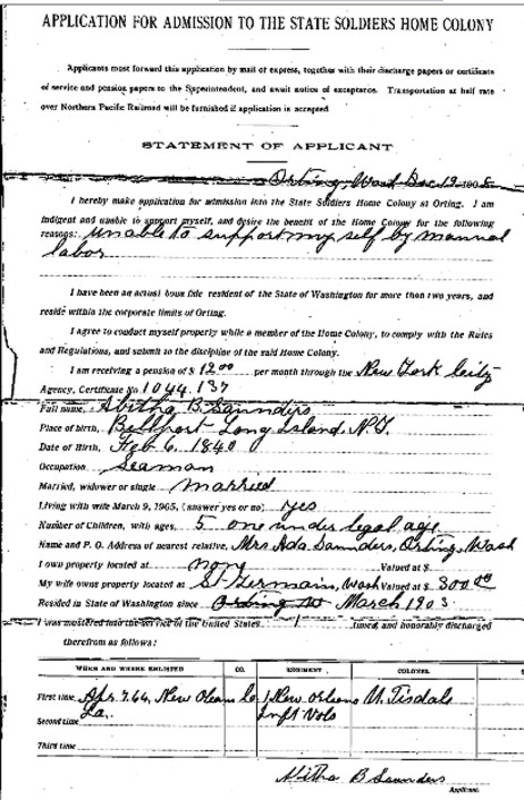 APPLICATION FOR ADMISSION TO THE STATE SOLDIERS HOME COLONY
Applicants must forward this application by mail or express, together with their discharge papers or certificate
of service and pension papers to the Superintendent, and await notice of acceptance. Transportation at half rate
over Northern Pacific Railroad will be furnished if application is accepted
STATEMENT OF APPLICANT
Orting, Wash Dec 19 1908
I hereby make application for admission into the State Soldiers Home Colony at Orting. I am
indigent and unable to support myself, and desire the benefit of the Home Colony for the following
reasons: unable to support my self by manual
labor
I have been an actual bona fide resident of the State of Washington for more than two years, and
reside within the corporate limits of Orting.
I agree to conduct myself properly while a member of the Home Colony, to comply with the Rules
and Regulations, and submit to the discipline of the said Home Colony.
I am receiving a pension of $ 12.00 per month through the New York City
Agency, Certificate No 1044.137
Full name, Abitha B Saunders
Place of birth, Bellport Long Island, N.Y.
Date of Birth, Feb 6, 1840
Occupation Seaman
Married, widower or single married
Living with wife March 9, 1905, (answer yes or no) yes
Number of Children, with ages, 5 one under legal age
Name and P. O. Address of nearest relative, Mrs Ada Saunders, Orting, Wash
I own property located at none Valued at $
My wife owns property located at St Germain, Wash Valued at $ 300.00
Resided in State of Washington since Orting W March 1903
I was mustered into the service of the United States 1 times, and honorably discharged
therefrom as follows:
WHEN AND WHERE ENLISTED CO. REGIMENT COLONEL
First time, Apr 7. 64, New Orleans Co 1 New Orleans M. Tisdale
Second time La. Inft Vols
Third time
Abitha B Saunders
Applicant.